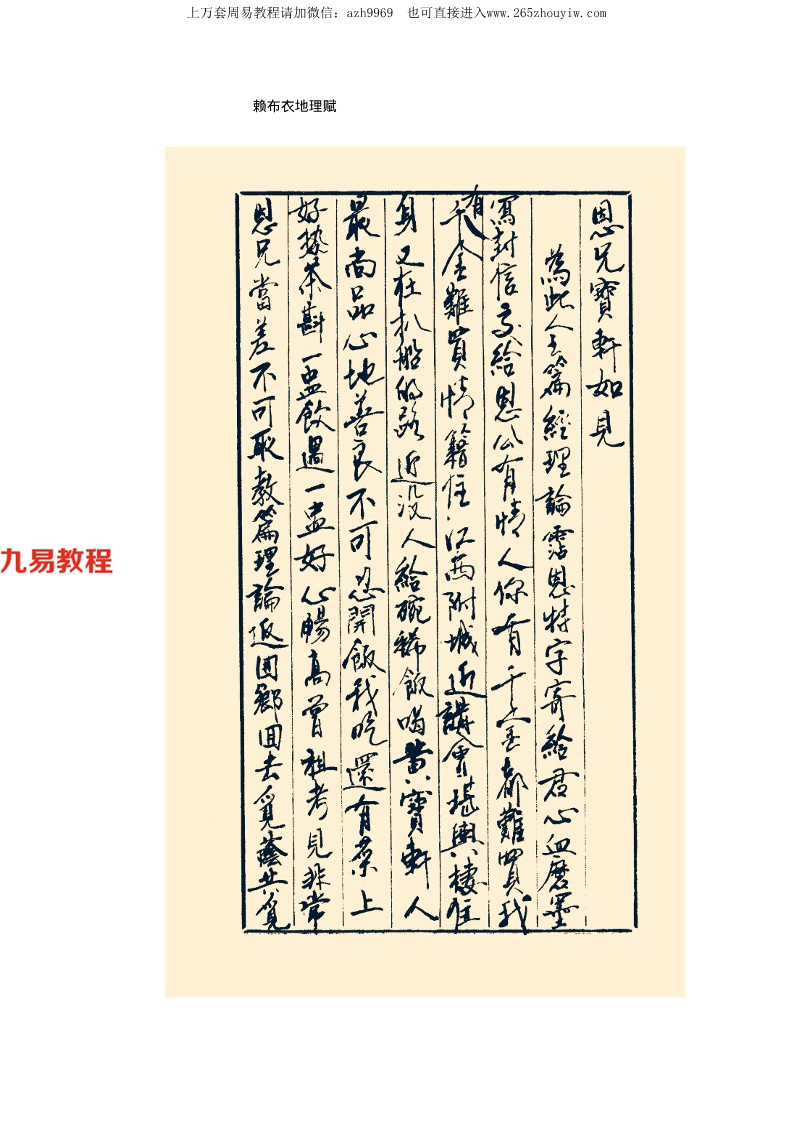 上万套周易教程请加微信：azh9969 也可直接进入www.265zhouyiw.com
赖布衣地理赋
恩兄寶軒如見
為此人上篇經理論霑恩特字寄給君心血磨墨
寫封信交給恩公有情人你有千金都難買我
有千金難買情籍住江西附城近講會堪輿棲住
身又在扒船的路近没人給碗稀飯喝黄寶軒人
最尚品心地善良不可忍開飯我吃還有菜上
好熱茶斟一盅飲過一盅好心暢高曾祖考見非常
恩兄當差不可耽教篇理論返囬鄉囬去覓蔭共覓
九易教程